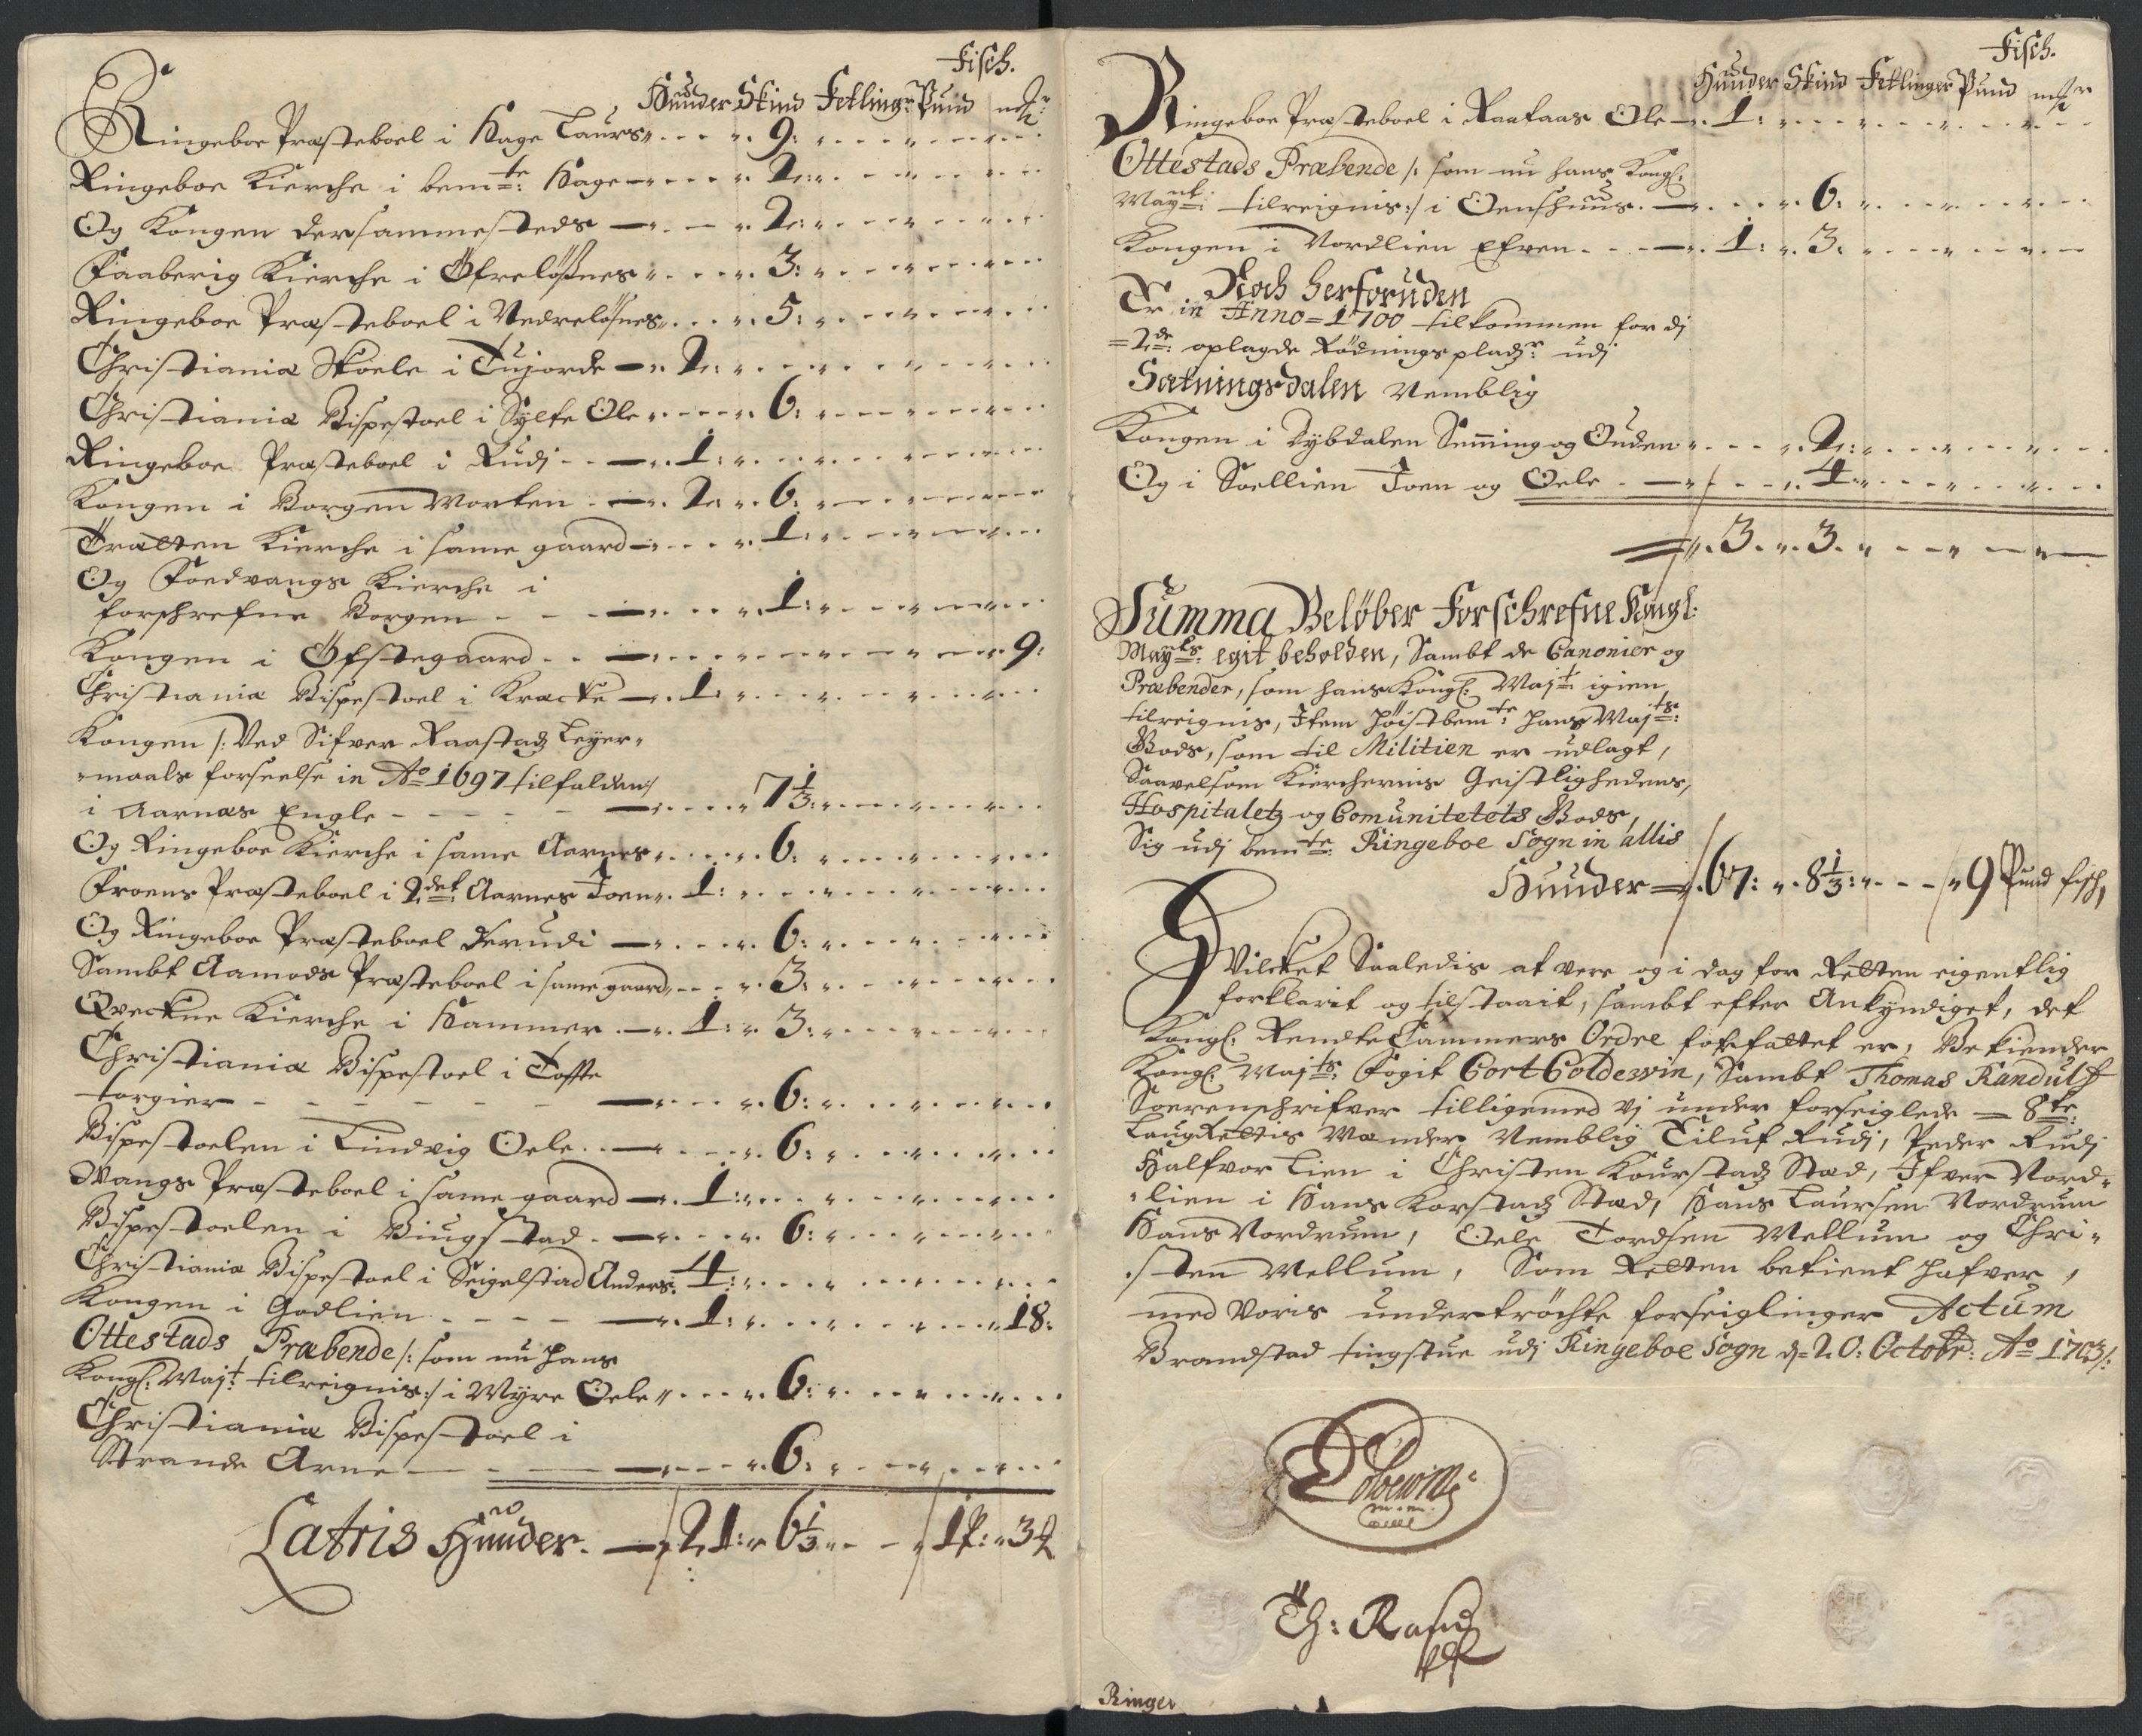 Fisch.
Huuder Skind Fetling: Pund
Ringeboe Præsteboel i Hage Laurs 9:
Ringeboe Kierche i bemte: Hage 2:
Og Kongen dersammesteds 2:
Faaberig Kierche i Öfrelößnes 3:
Ringeboe Præsteboel i Nedrelösnes 5:
Christiania Skoele i Tujorde 2:
Christiania Bispestoel i Sylte Ole 6:
Ringeboe Præsteboel i Rudj 1:
Kongen i Borgen Morten 2: 6:
Tratten Kierche i same gaard 1:
Og Foedvangs Kierche i
forschrefne Borgen 1:
Kongen i Öfstegaard 9:
Christiania Bispestoel i Kracke 1:
Kongen /: Ved Sifver Raastad Leyer-
-maals forseelse in Ao 1697 tilfalden:/
i Aarnæs Engle 7 1/3:
Og Ringeboe Kierche i same Aarnes 6:
Froens Præsteboel i 2det Aarnes Joen 1:
Og Ringeboe Præsteboel Derudi 6:
Sambt Aamods Præsteboel i same gaard 3:
Qveckne Kierche i Hammer 1: 3:
Christiania Bispestoel i Toffte
torgier 6:
Bispestoelen i Lindvig Oele 6:
Wangs Præsteboel i same gaard 1:
Bispestoelen i Biugstad 6:
Christiania Bispestoel i Seigelstad Anders: 4:
Kongen i Godlien 1: 18:
Ottestads Præbende /: som nu hans
Kongl: Majt: tilreignis :/ i Myre Oele 6:
Christiania Bispestoel i
Strande Arne 6:
Latris Huuder 21: 6 1/3 1 p: 3
Fisch.
Huuder Skind Fetlinger Pund
Ringeboe Præsteboel i Raafaas Ole 1:
Ottestads Præbende /: som nu hans Kongl:
Maytt: tilreignis :/ i Oenshuus 6:
Kongen i Nordlien Efven 1: 3:
Noch herforuden
Er in Anno = 1700 tilkommen for dj
= 2de: oplagde Rödningspladzr: udj
Sætningsdalen Nemblig
Kongen i Dybdalen Senning og Ouden 2:
Og i Soellien Joen og Oele 4:
3. 3.
Summa Belöber Forschrefne Kongl:
Mayts: egit beholden, Sambt de Canonier og
Præbender, som hans Kongl: Majt: igien
tilreignis, Item höistbemte: hans Majts:
Gods, som til Militien er udlagt,
Saavelsom Kierchernis Geistlighedens,
Hospitaletz og Comunitetets Gods,
Sig udj bemte: Ringeboe Sogn in allis
Huuder 67: 8 1/3: 9 Pund fisch,
Hvilcket Saaledis at vere og i dag for Retten eigentlig
forklarit og tilstaait, sambt efter Ankyndiget, det
Kongl: Rendte Cammers Ordre forfattet er, Bekiender
Kongl: Majts: Fogit Cort Coldevin, Sambt Thomas Randulf
Soerenschrifver tilligemed vj under forseiglede = 8te:
LaugRettis Mænder, Nemblig Eiluf Rudj, Peder Rudj
Halfvor Lien i Christen Kourstadz Stæd, Ifver Nord-
-lien i Hans Korstadz Stæd, Hans Laursen Nordrum
Hans Nordrum, Oele Tordsen Mellum og Chri-
sten Mellum, Som Retten bekient hafver,
med Voris undertröchte forseiglinger Actum
Brandstad tingstue udj Ringeboe Sogn d. 20: Octobr: Ao 1703/:
Coldewin
Th: Randulf
Ringe